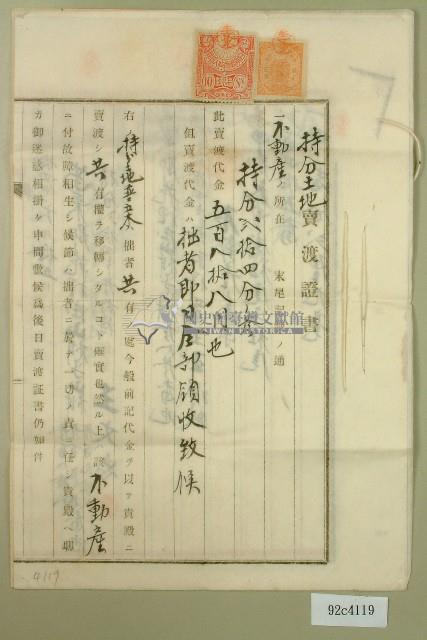 持分土地賣渡證書
一不動產ノ所在 末尾記載ノ通
持分貳拾四分
此賣渡代金 五百八拾八円也
但賣渡代金ハ拙者即日全部領收致候
右ハ拙者共有ノ處今般前記代金ヲ以テ貴殿ニ
賣渡シ共有權ヲ移轉シタルコト確實也然ル上ハ該不動產
ニ付故障相生シ候節ハ拙者ニ於テ一切ノ責ニ任シ貴殿ヘ聊
カ御迷惑相掛ケ申間敷候為後日賣渡証書仍如件
國史館臺灣文獻館
TAIWAN HISTORICA
4119
92c4119